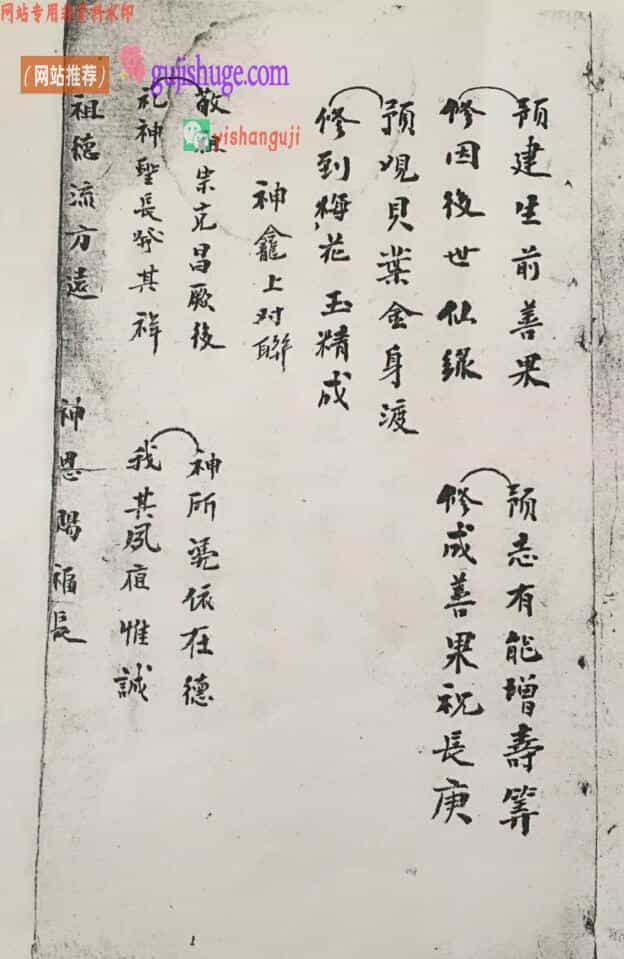 网站专用非资料水印
（网站推荐）
gujishuge.com
yishanguji
预建生前善果
修因後世仙緣
预志有能增壽筭
修成善果祝長庚
预观貝葉金身渡
修到梅花玉精成
神龛上对聯
敬祖崇宗克昌厥後
礼神聖長發其祥
神所凭依在德
我其夙夜惟誠
祖德流方遠
神恩賜福長